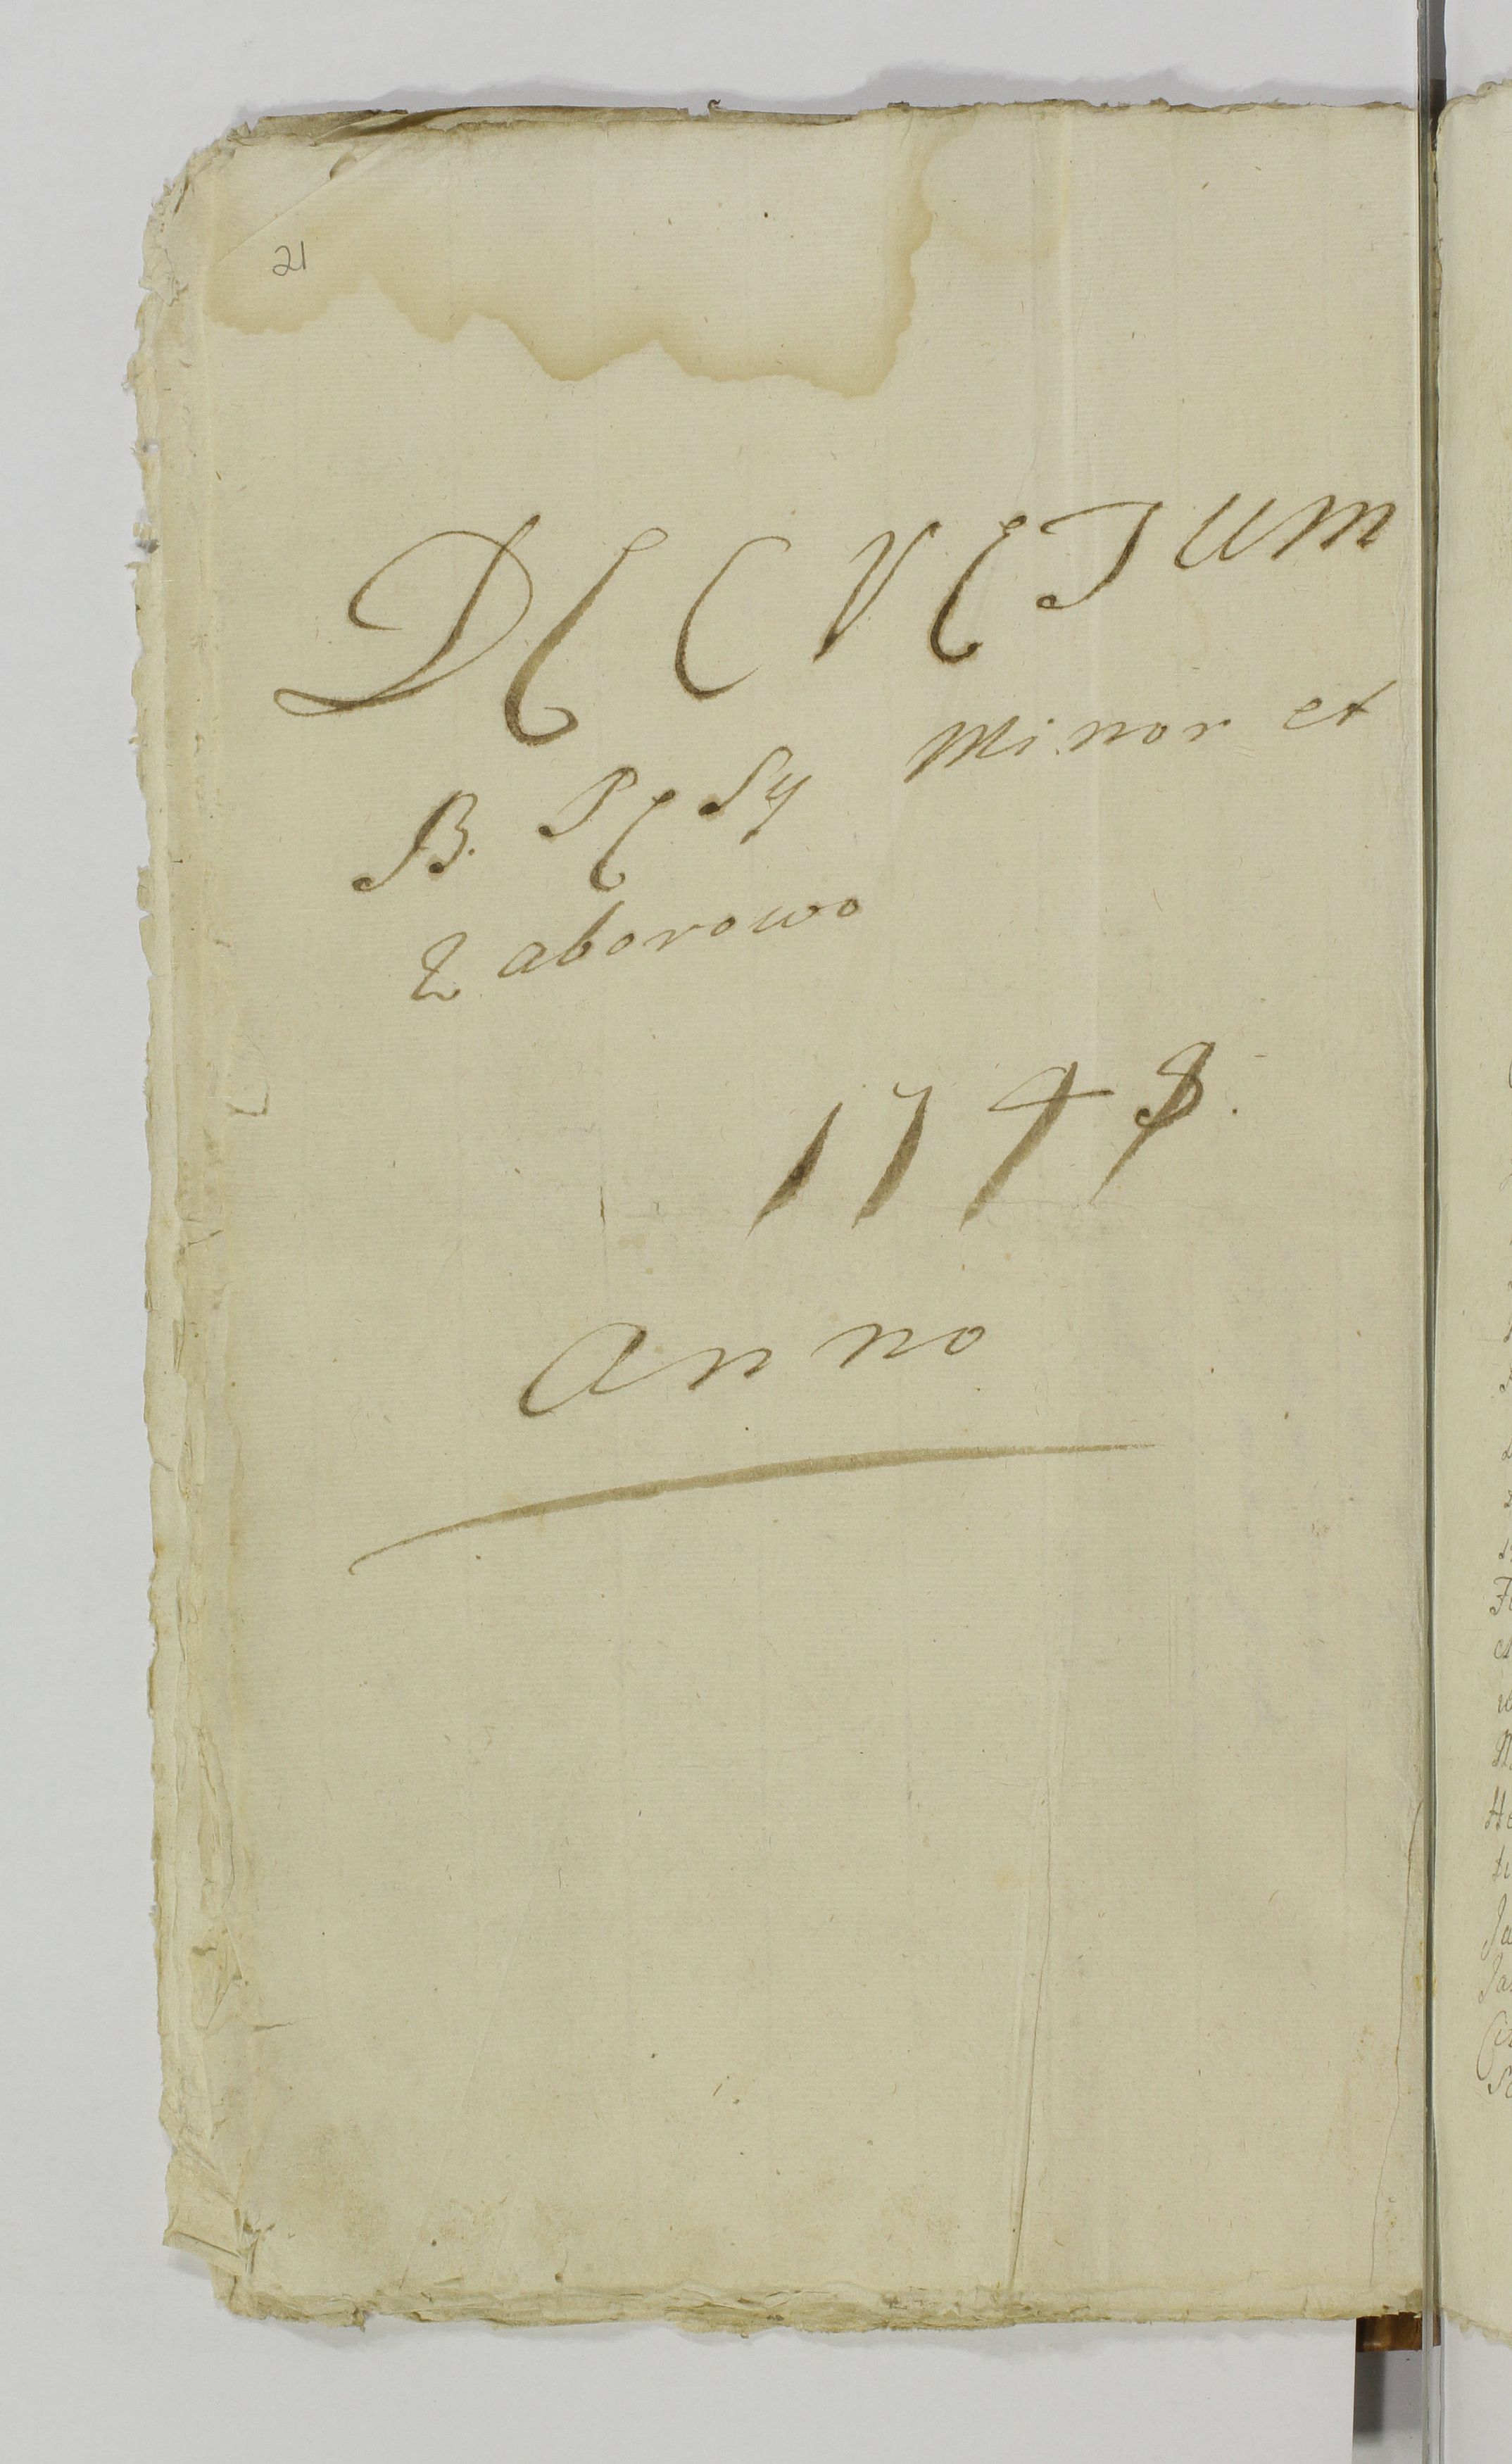 21
DECRETUM
B. PESY Minor et
Zaborowo
1748.
Anno